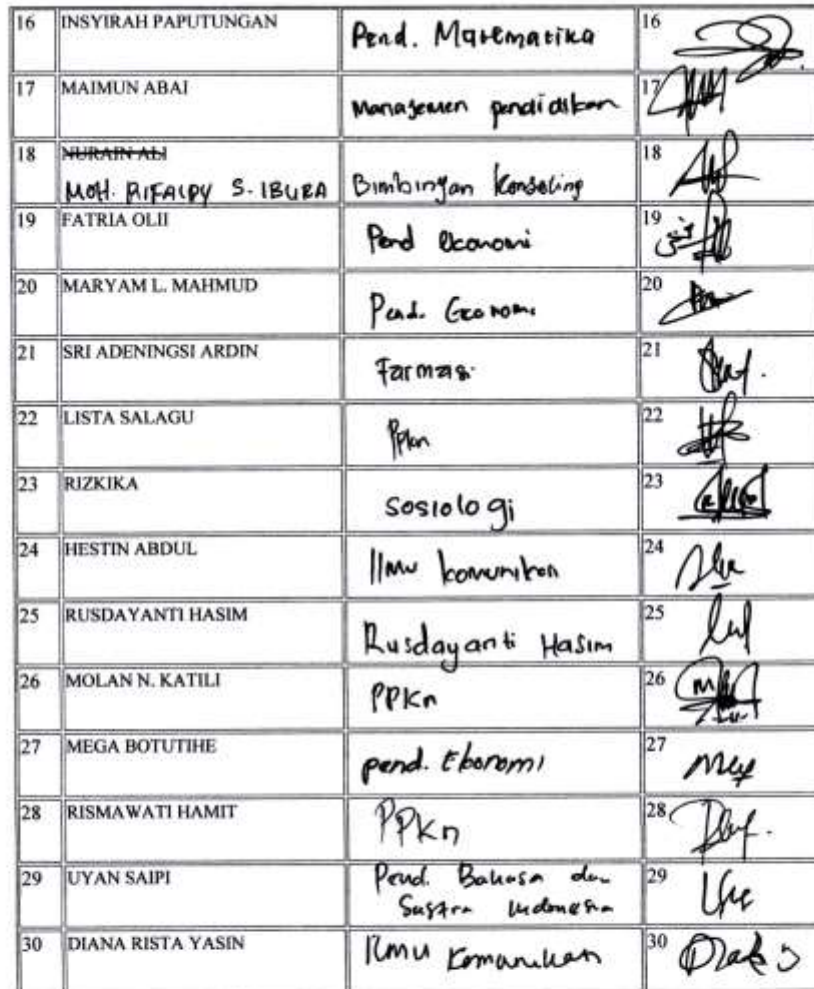 16 INSYIRAH PAPUTUNGAN Pend. Matematika 16
17 MAIMUN ABAI Manajemen pendidikan 17
18 NURAIN ALI 18
MOH. RIFALDY S. IBURA Bimbingan Konseling
19 FATRIA OLII Pend ekonomi 19
20 MARYAM L. MAHMUD Pend. Ekonomi 20
21 SRI ADENINGSI ARDIN Farmasi 21
22 LISTA SALAGU PPkn 22
23 RIZKIKA Sosiologi 23
24 HESTIN ABDUL Ilmu komunikasi 24
25 RUSDAYANTI HASIM Rusdayanti Hasim 25
26 MOLAN N. KATILI PPKn 26
27 MEGA BOTUTIHE pend. Ekonomi 27
28 RISMAWATI HAMIT PPKn 28
29 UYAN SAIPI Pend. Bahasa dan 29
Sastra Indonesia
30 DIANA RISTA YASIN Ilmu Komunikasi 30